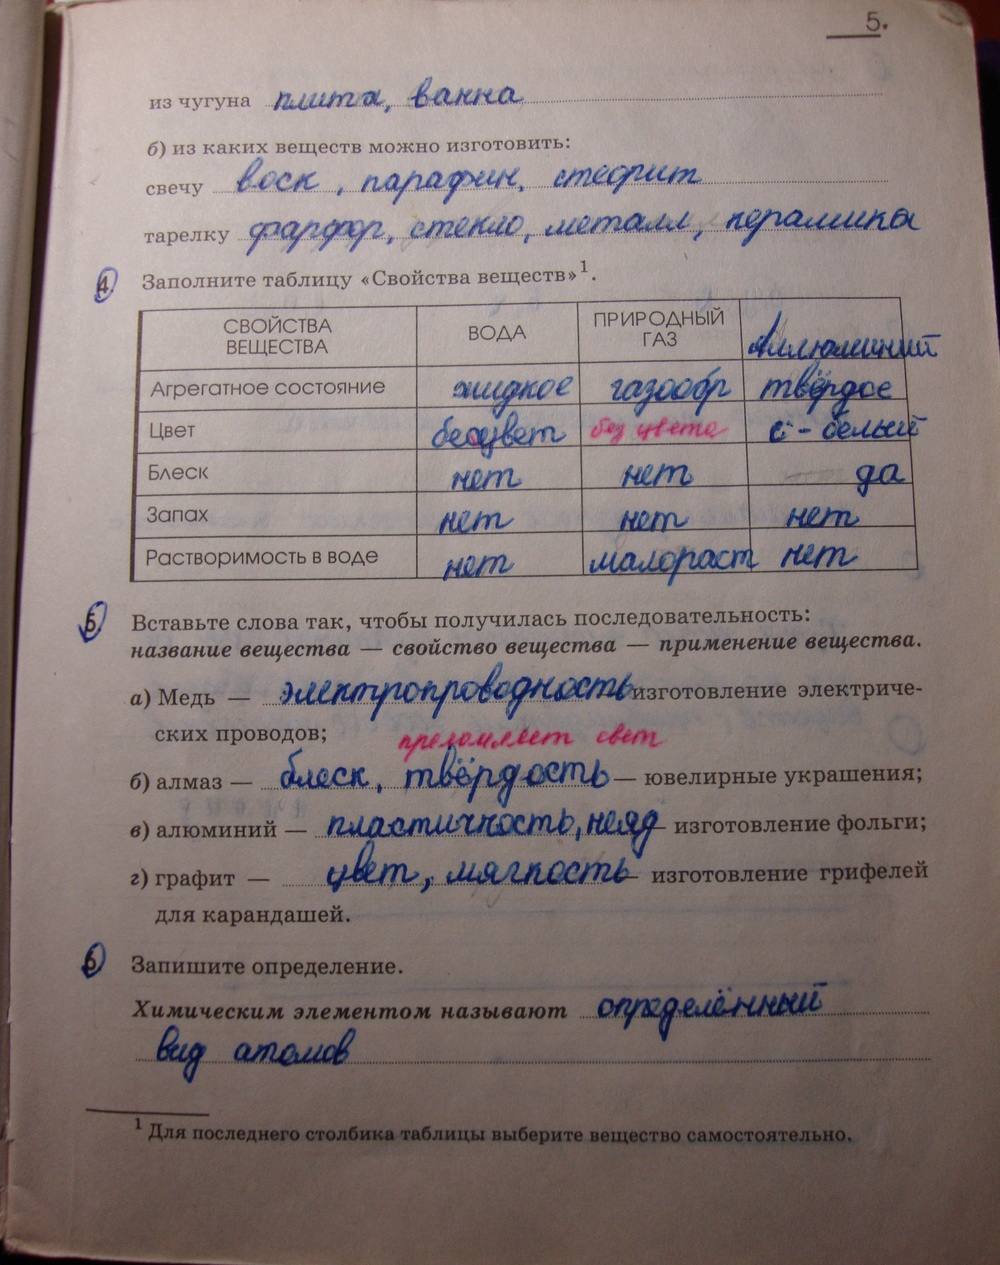 5.
из чугуна плита, ванна
б) из каких веществ можно изготовить:
свечу воск, парафин, стеорит
тарелку фарфор, стекло, металл, керамика
4 Заполните таблицу «Свойства веществ»1.
СВОЙСТВА ВЕЩЕСТВА ВОДА ПРИРОДНЫЙ ГАЗ Аллюминий
Агрегатное состояние жидкое газообр твёрдое
Цвет бесцвет без цвета с-белый
Блеск нет нет да
Запах нет нет нет
Растворимость в воде нет малораст нет
5 Вставьте слова так, чтобы получилась последовательность:
название вещества — свойство вещества — применение вещества.
а) Медь — электропроводность изготовление электриче-
ских проводов;
преломляет свет
б) алмаз — блеск, твёрдость — ювелирные украшения;
в) алюминий — пластичность, неяд — изготовление фольги;
г) графит — цвет, мягкость — изготовление грифелей
для карандашей.
6 Запишите определение.
Химическим элементом называют определённый
вид атомов
1 Для последнего столбика таблицы выберите вещество самостоятельно.